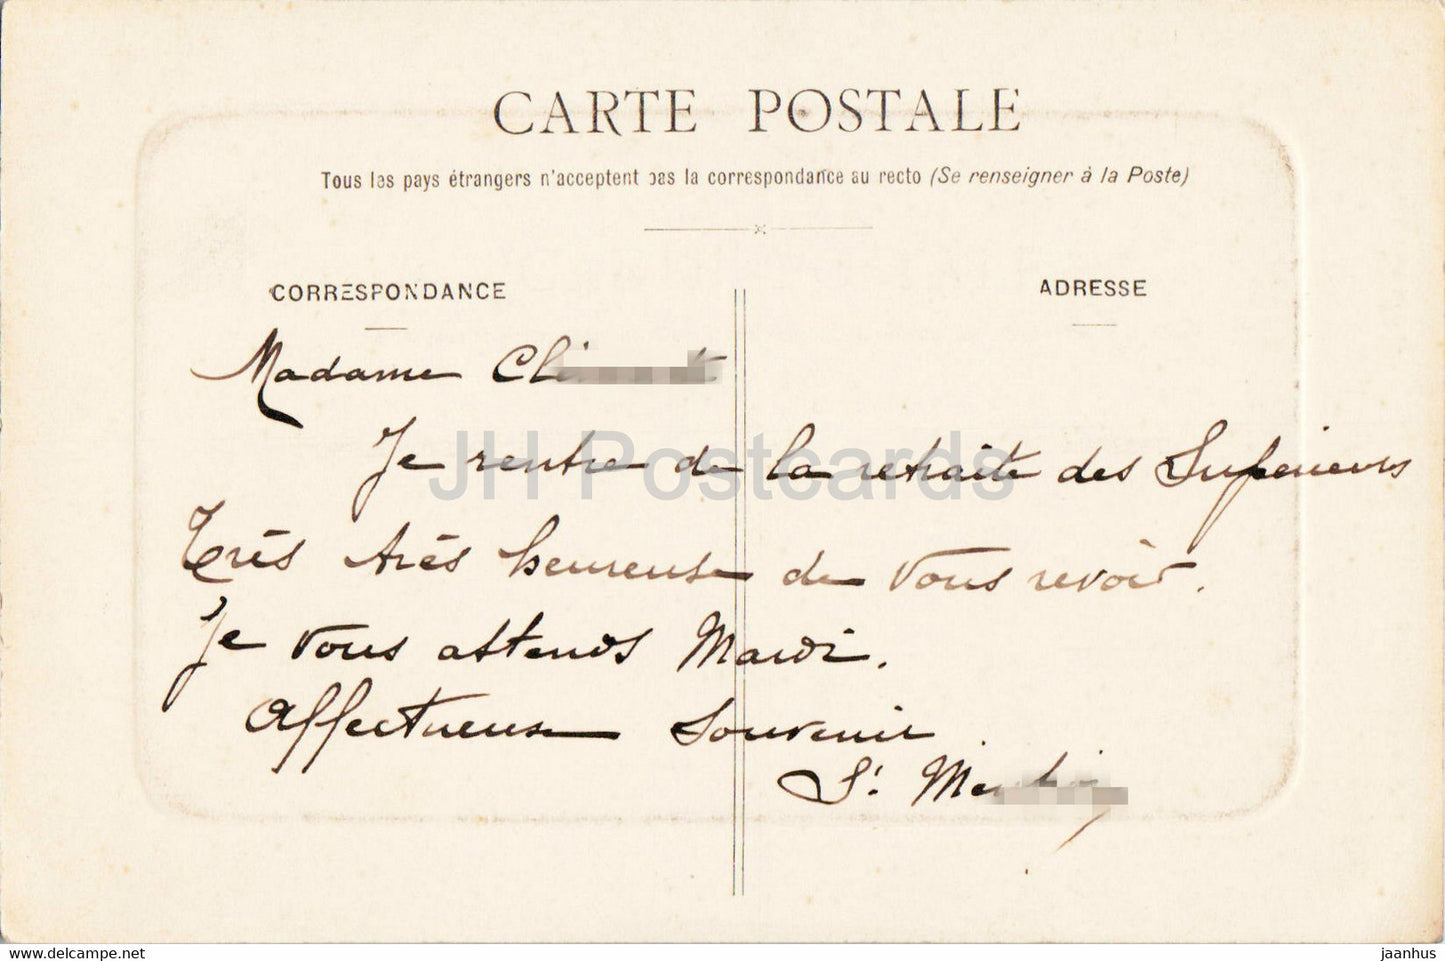 CARTE POSTALE
Tous les pays étrangers n'acceptent pas la correspondance au recto (Se renseigner à la Poste)
CORRESPONDANCE
ADRESSE
Madame
Je rentre de la retraite des Supérieurs
Très très heureuse de vous revoir.
Je vous attends Mardi.
Affectueux Souvenir
Sr
JH Postcards
https://www.hippostcard.com
jaanhus